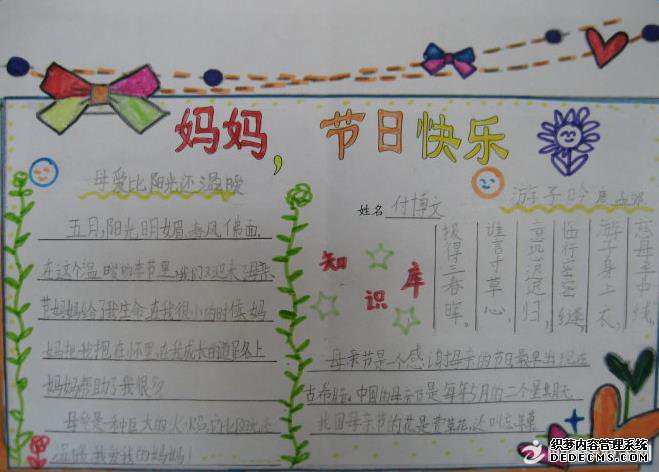 妈妈，节日快乐
母爱比阳光还温暖
五月,阳光明媚,春风佛面,
在这个温暖的季节里,我们又迎来了母亲
节妈妈给了我生命,在我很小的时候,妈
妈把我抱在怀里,在我成长的道路上
妈妈帮助了我很多
母爱是一种巨大的火焰,它比阳光还
温暖,我爱我的妈妈!
姓名 付博文
知识库
游子吟 唐 孟郊
慈母手中线,
游子身上衣,
临行密密缝,
意恐迟迟归,
谁言寸草心,
报得三春晖。
母亲节是一个感谢母亲的节日最早出现在
古希腊,中国的母亲节是每年5月的二个星期天
我国母亲节的花是萱草花,还叫忘
织梦内容管理系统